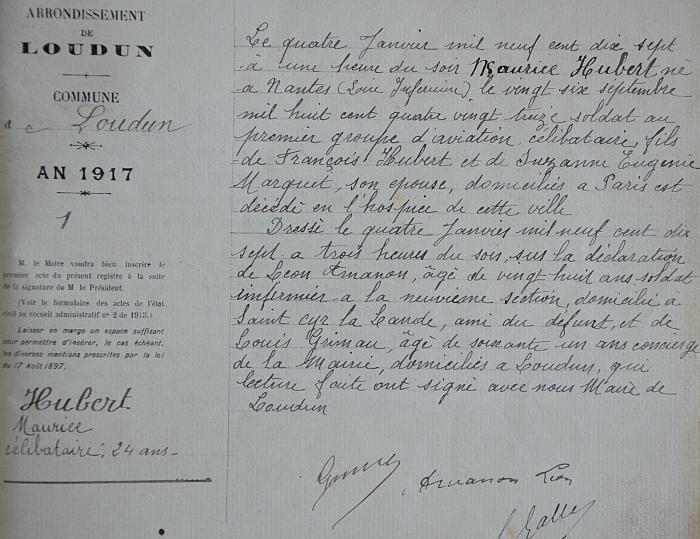 ARRONDISSEMENT
DE
LOUDUN
COMMUNE
d e Loudun
AN 1917
1
M. le Maire voudra bien inscrire le
premier acte du présent registre à la suite
de la signature de M. le Président.
(Voir le formulaire des actes de l'état
civil au recueil administratif nº 2 de 1913.)
Laisser en marge un espace suffisant
pour permettre d'insérer, le cas échéant,
les diverses mentions prescrites par la loi
du 17 Août 1897.
Hubert
Maurice
célibataire; 24 ans -
Le quatre Janvier mil neuf cent dix sept
à une heure du soir Maurice Hubert né
a Nantes (Loire Inférieure), le vingt six septembre
mil huit cent quatre vingt treize soldat au
premier groupe d'aviation, célibataire, fils
de François Hubert et de Suzanne Eugenie
Marquet, son epouse, domiciliés a Paris est
décédé en l'hospice de cette ville
Dressé le quatre Janvier mil neuf cent dix
sept a trois heures du soir, sur la déclaration
de Léon Amanon, âgé de vingt huit ans soldat
infirmier a la neuvième section, domicilié a
Saint Cyr la Lande, ami du defunt, et de
Louis Grimau, agé de soixante un ans concierge
de la Mairie, domiciliés a Loudun, qui
lecture faite ont signé avec nous Maire de
Loudun
Amanon Léon